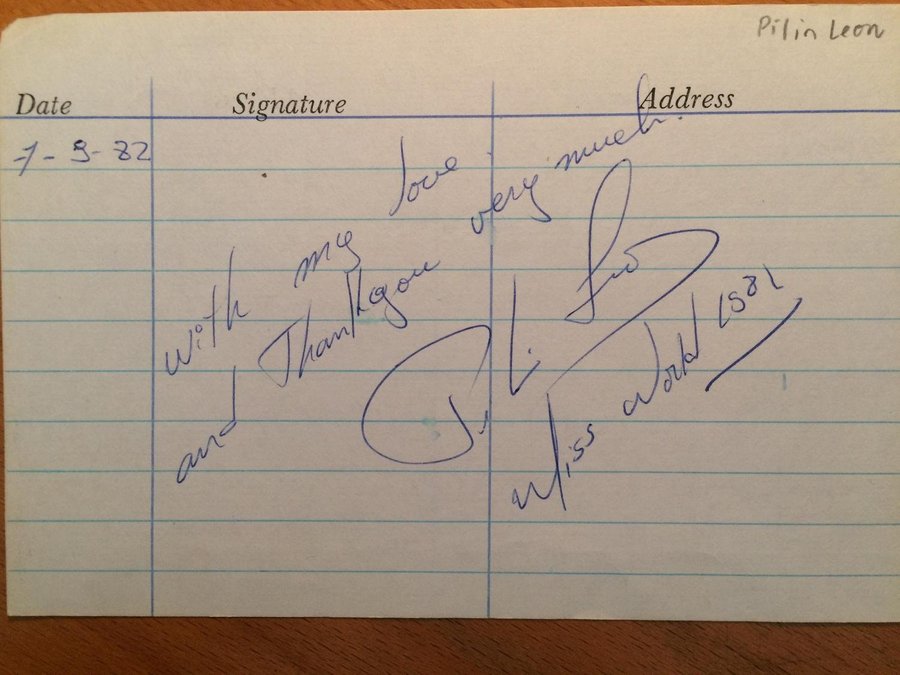 Pilin Leon
Date Signature Address
7-9-82
with my love
and Thank you very much.
Pilin Leon
Miss World 1981